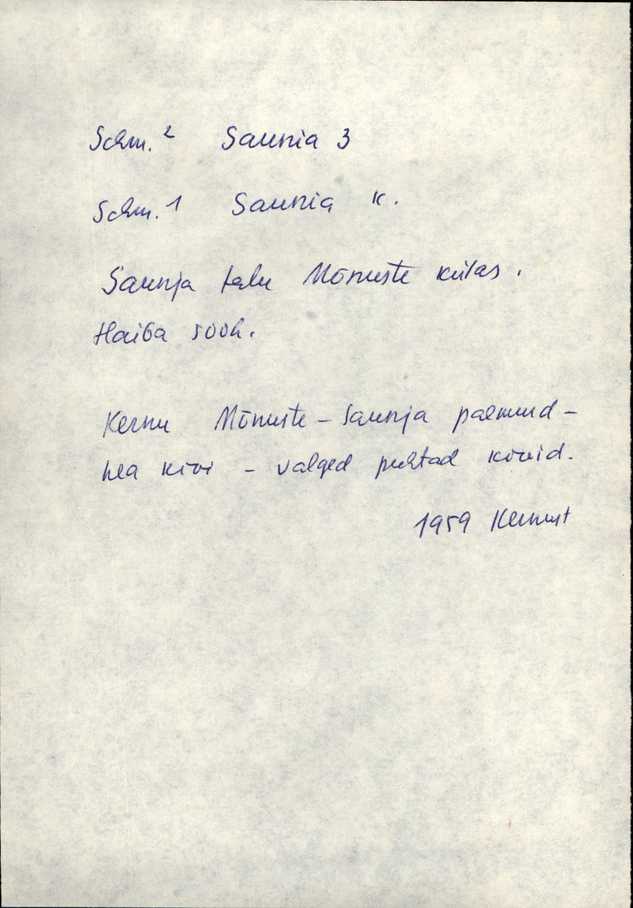 Schm.² Saunia 3
Schm.1 Saunia k.
Saunja talu Mõnuste külas.
Haiba sooh.
Kernu Mõnuste – Saunja paemurd –
hea kivi – valged puhtad kivid.
1959 Kernust